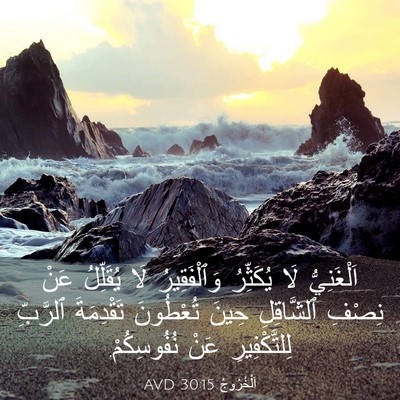 اَلْغَنِيُّ لَا يُكَثِّرُ وَٱلْفَقِيرُ لَا يُقَلِّلُ عَنْ
نِصْفِ ٱلشَّاقِلِ حِينَ تُعْطُونَ تَقْدِمَةَ ٱلرَّبِّ
لِلتَّكْفِيرِ عَنْ نُفُوسِكُمْ.
اَلْخُرُوجُ 30:15 AVD